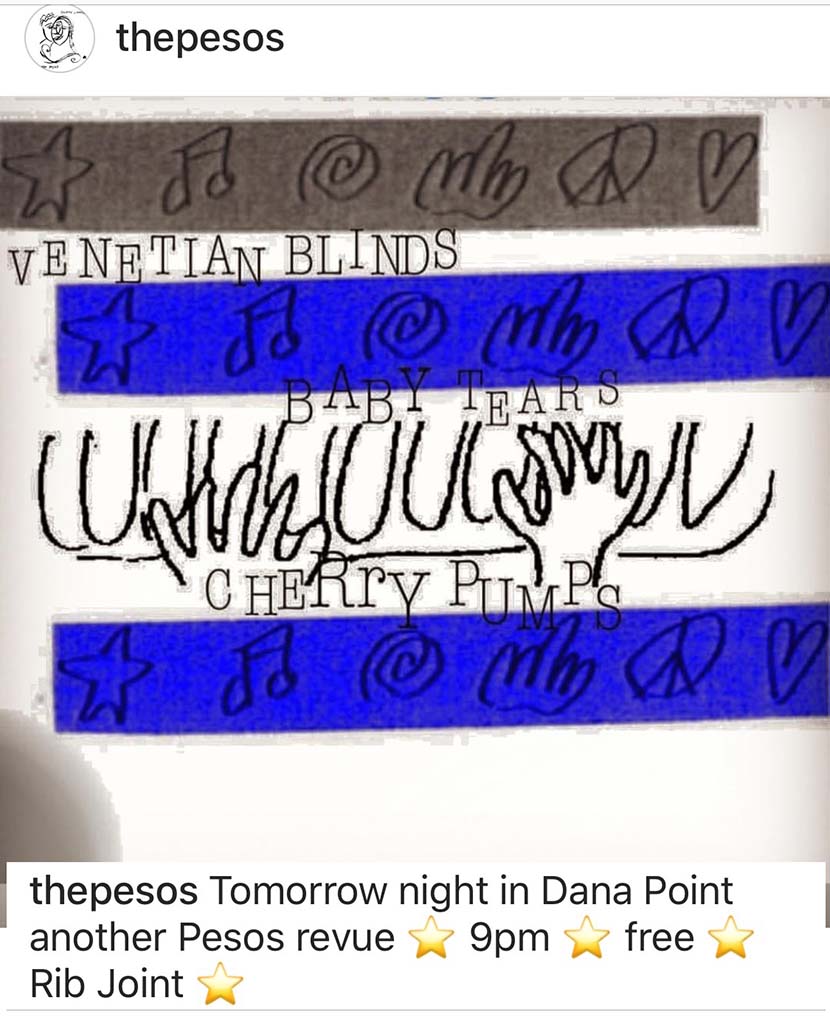 thepesos
VENETIAN BLINDS
BABY TEARS
CHERRY PUMPS
thepesos Tomorrow night in Dana Point
another Pesos revue ⭐ 9pm ⭐ free ⭐
Rib Joint ⭐